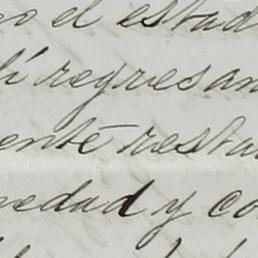 o el estad
í regresan
ente resta
nedad y co